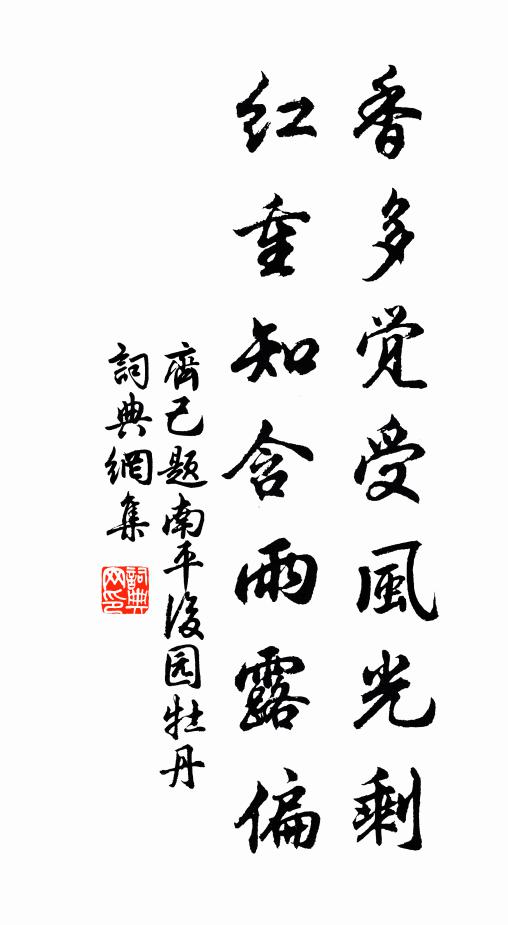 香多觉受風光剩
紅重知含雨露偏
齊己题南平後园牡丹
詞典網集
詞典網印